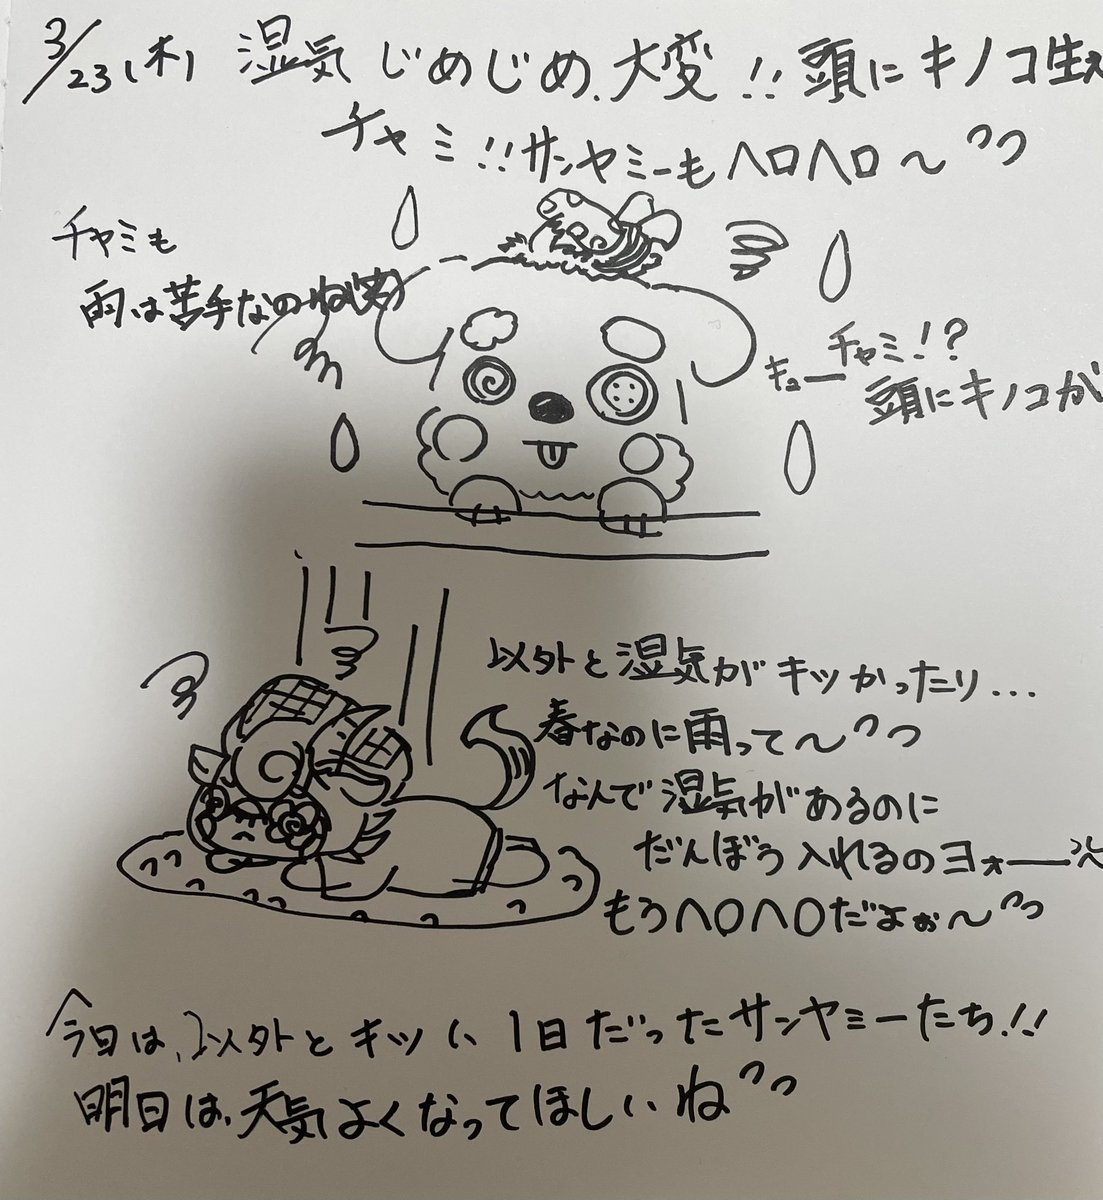 3/23(木) 湿気じめじめ、大変!!頭にキノコ生え
チャミ!!サンヤミーもヘロヘロ〜
チャミも
雨は苦手なのね(笑)
チャミ!?
キュー
頭にキノコが
以外と湿気がキツかったり...
春なのに雨って〜
なんで湿気があるのに
だんぼう入れるのヨォー
もうヘロヘロだよぉ〜
今日は、以外とキツい1日だったサンヤミーたち!!
明日は、天気よくなってほしいね